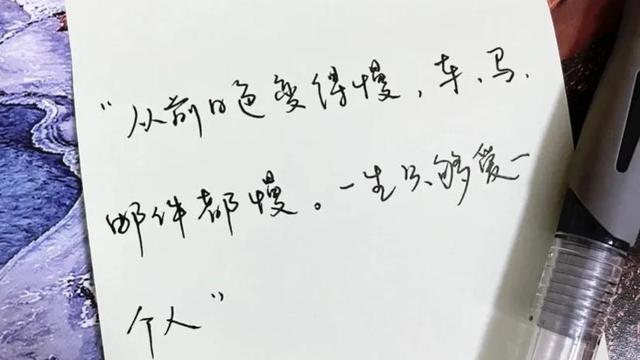 “从前日色变得慢，车、马、
邮件都慢。一生只够爱一
个人”